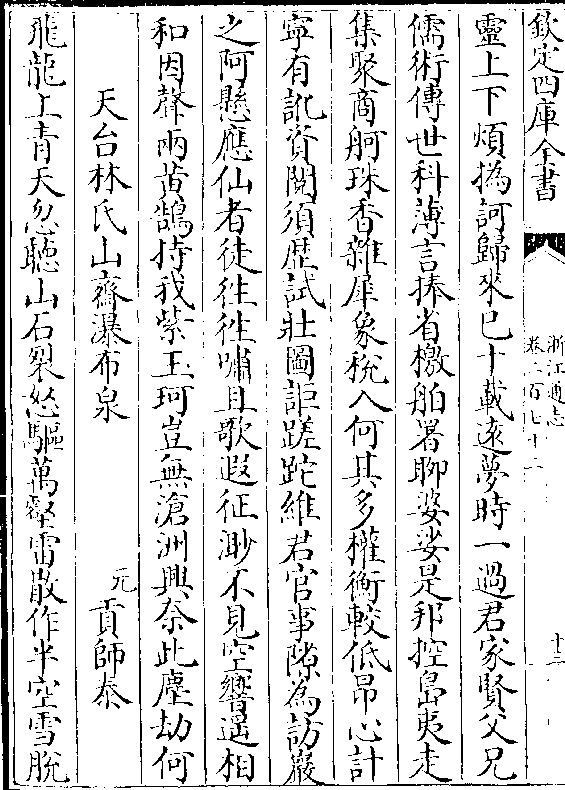 欽定四庫全書
浙江通志
卷二百七十二
十二
靈上下煩撝訶歸來已十載遠夢時一過君家賢父兄
儒術傳世科薄言捧省檄舶署聊婆娑是邦控島夷走
集聚商舸珠香雜犀象稅入何其多權衡較低昂心計
寧有訛資閱須歴試壯圖詎蹉跎維君官事隙為訪巖
之阿懸應仙者徒往往嘯且歌遐征渺不見空響遥相
和因聲兩黄鵠持我紫玉珂豈無滄洲興奈此塵劫何
天台林氏山齋瀑布泉
元
貢師泰
飛龍上青天忽聽山石裂怒驅萬壑雷散作半空雪脫